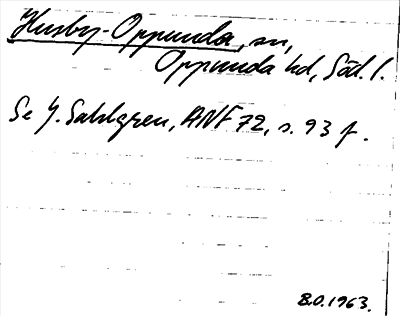 Husby-Oppunda, sn,
Oppunda hd, Söd. l.
Se J. Sahlgren, ANF 72, s. 93 f.
B.O. 1963.